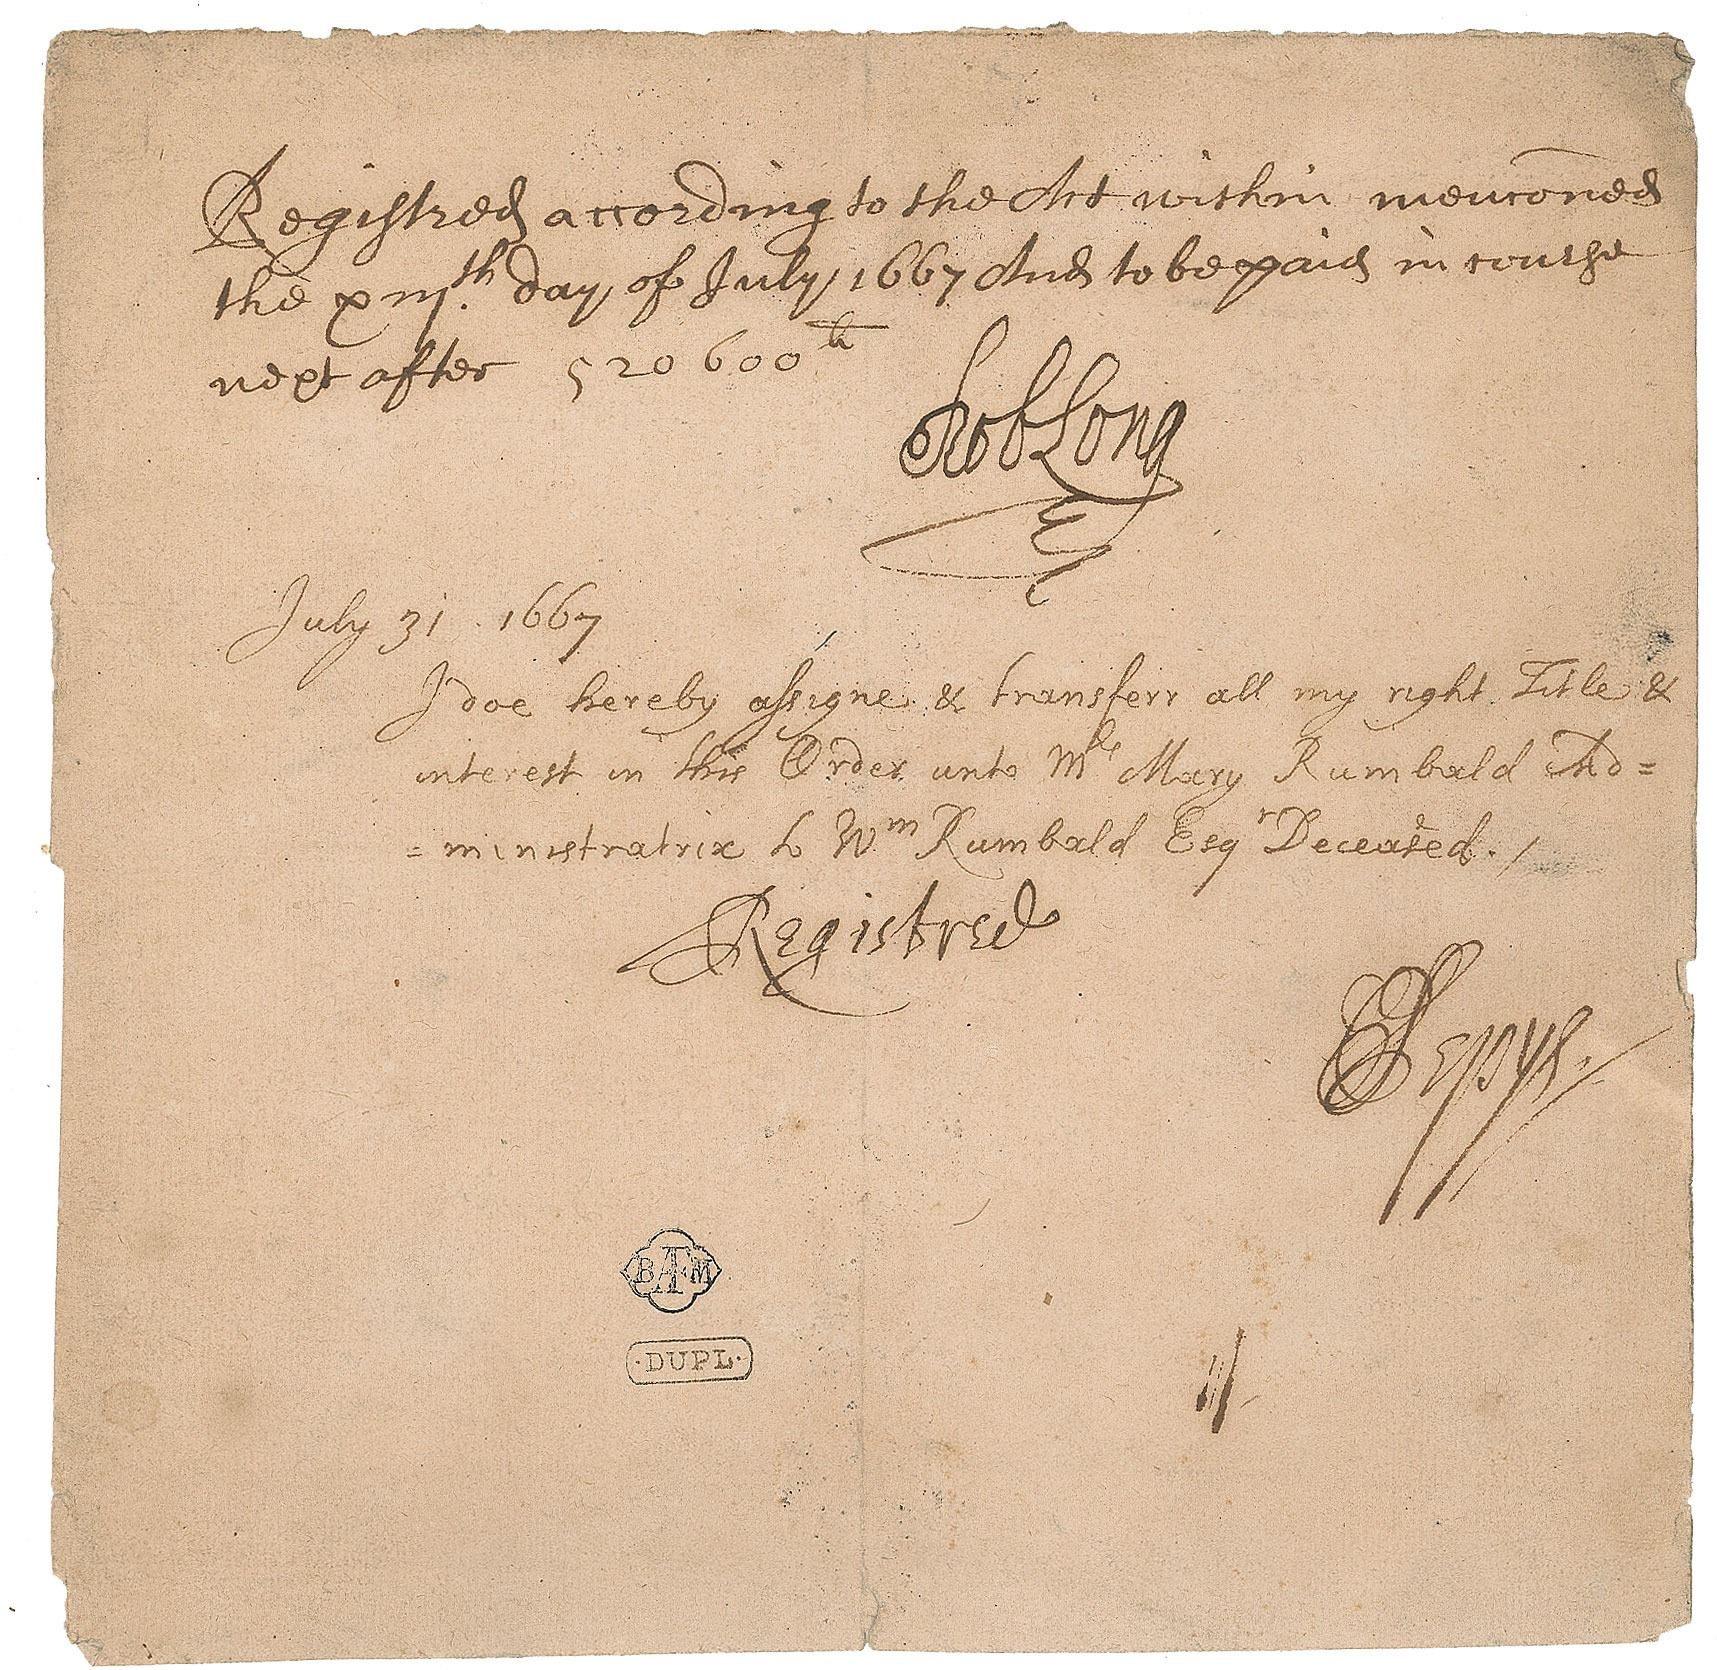 Registred according to the Act within mencõned
the xiijth day of July 1667 And to be paid in course
next after 520600li
Rob Long
July 31 . 1667
I doe hereby assigne & transferr all my right Title &
interest in this Order unto Mrs Mary Rumbald Ad=
=ministratrix to Wm Rumbald Esqr Deceased. /
Registred
SPepys.
BATM
·DUPL·